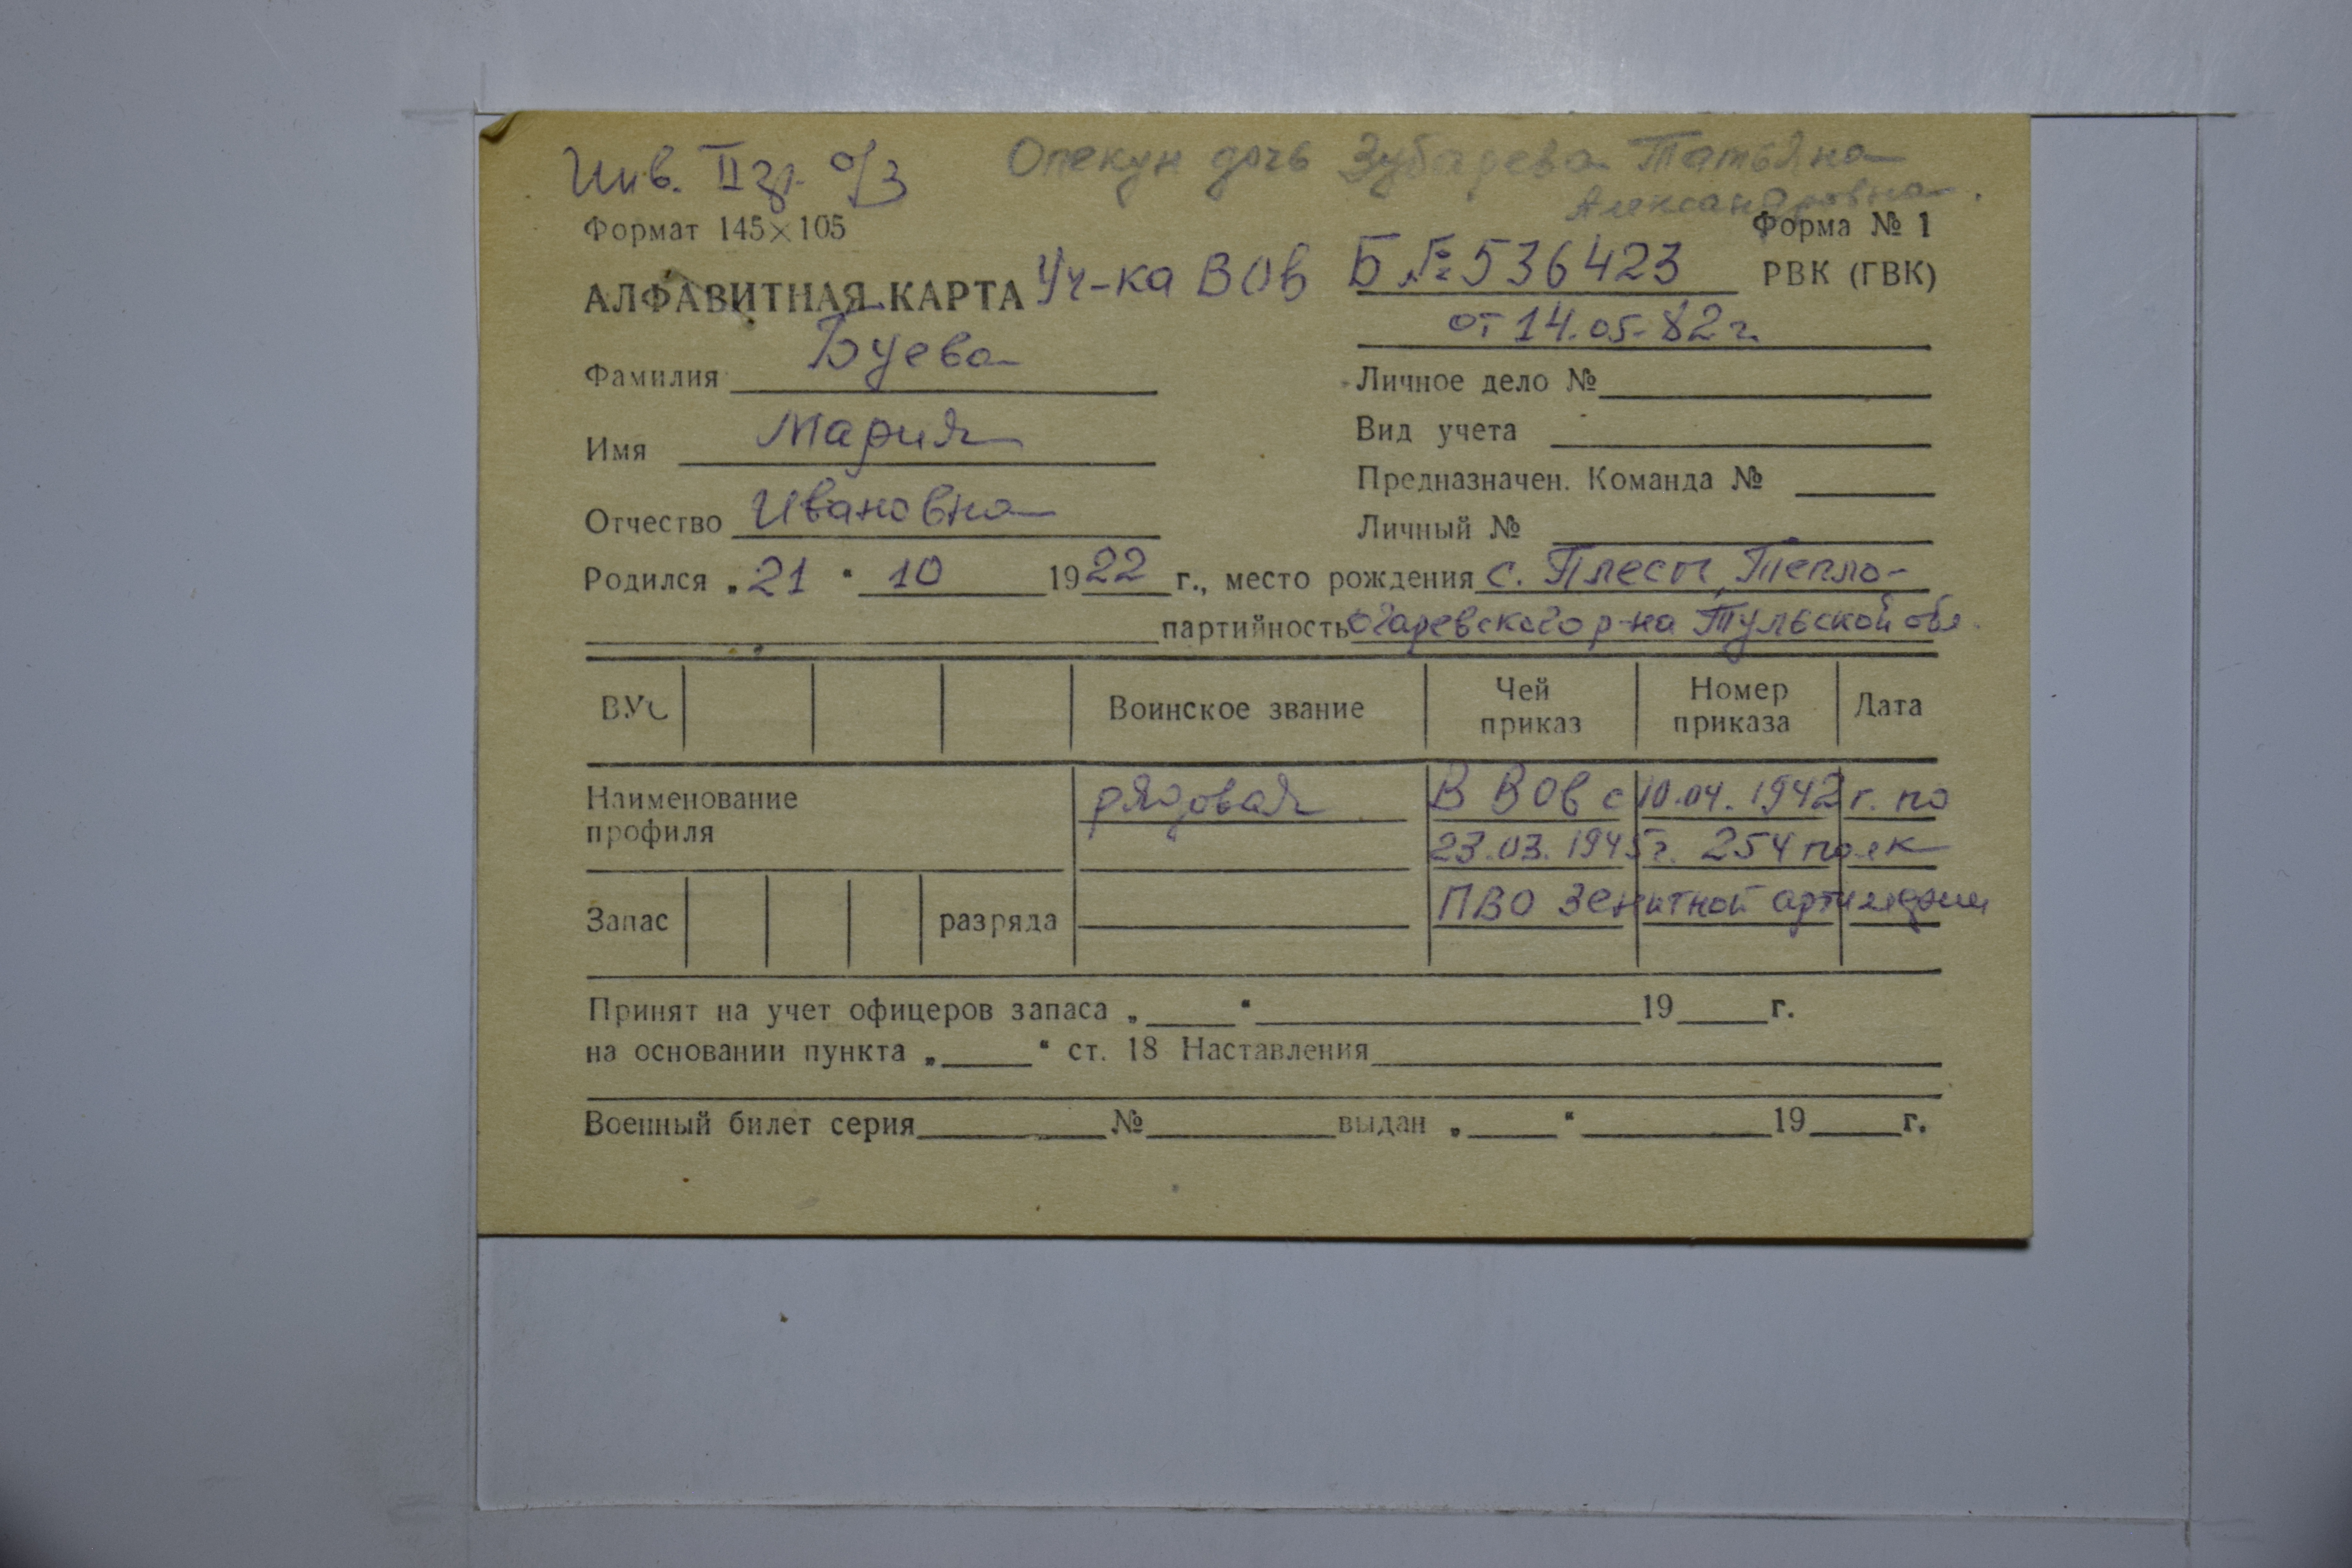 Инв. II гр. о/з Опекун дочь Зубарева Татьяна
Александровна.
Формат 145×105 Форма № 1
АЛФАВИТНАЯ КАРТА Уч-ка ВОВ Б № 536423 РВК (ГВК)
от 14.05.82 г.
Фамилия Буева
Личное дело №
Имя Мария
Вид учета
Предназначен. Команда №
Отчество Ивановна
Личный №
Родился „21“ 10 1922 г., место рождения с. Плесы, Тепло-
партийность огаревского р-на Тульской обл.
ВУС Воинское звание Чей приказ Номер приказа Дата
Наименование профиля рядовая В ВОВ с 10.04.1942 г. по
23.03.1945 г. 254 полк
Запас разряда ПВО зенитной артиллерии
Принят на учет офицеров запаса „ “ 19 г.
на основании пункта „ “ ст. 18 Наставления
Военный билет серия № выдан „ “ 19 г.